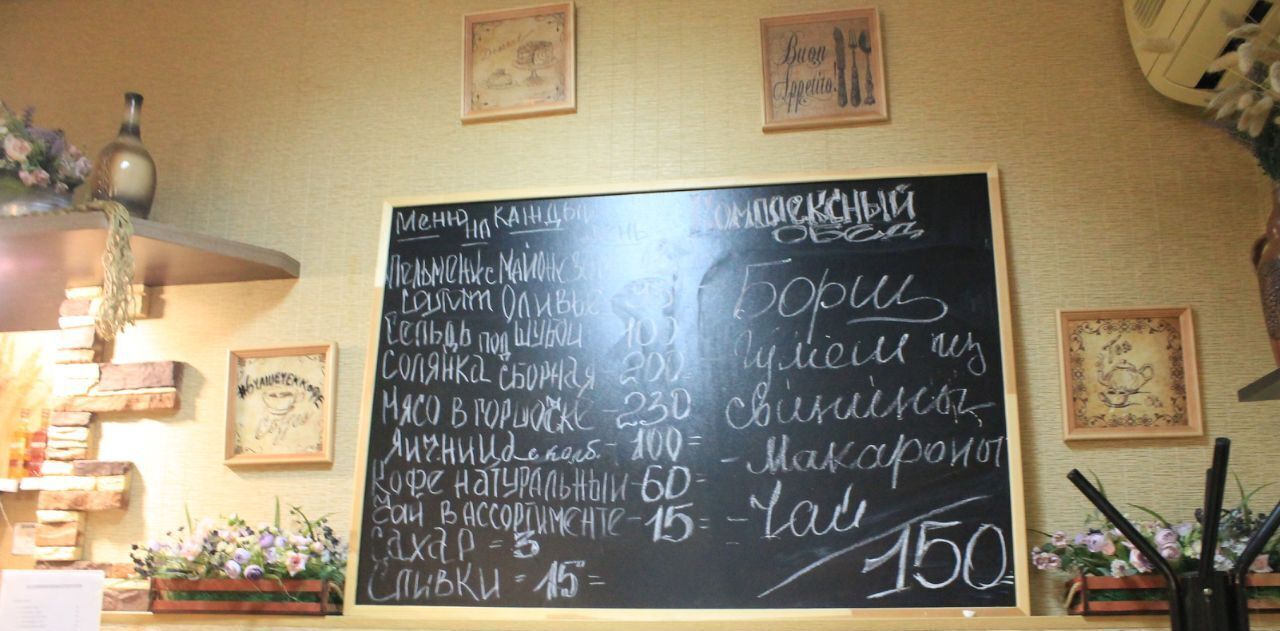 Buon
Appetito!
Меню на каждый день
Пельмени с майонезом
Салат Оливье
Сельдь под шубой 100
Солянка сборная 200
Мясо в горшочке - 230
Яичница с колб. - 100=
Кофе натуральный - 60=
Чай в ассортименте - 15=
Сахар = 3
Сливки = 15=
Комплексный
обед
Борщ
Гуляш из
свинины
- Макароны
- Чай
150=